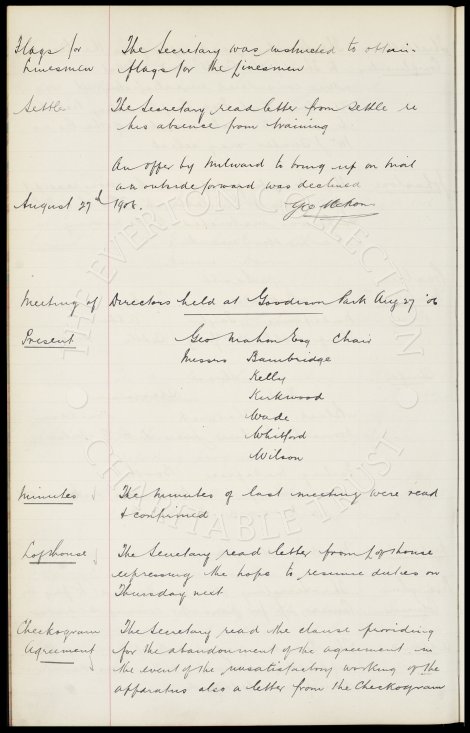 Flags for The Secretary was instructed to obtain
Linesmen flags for the Linesmen
Settle The Secretary read letter from Settle re
his absence from training
An offer by Milward to bring up on trial
an outside forward was declined
August 27th 1906. Geo Mahon
Meeting of Directors held at Goodison Park Aug 27 '06
Present Geo Mahon Esq Chair
Messrs Bainbridge
Kelly
Kirkwood
Wade
Whitford
Wilson
Minutes The Minutes of last meeting were read
& confirmed
Lofthouse The Secretary read letter from Lofthouse
expressing the hope to resume duties on
Thursday next
Checkogram The Secretary read the clause providing
Agreement for the abandonment of the agreement in
the event of the unsatisfactory working of the
apparatus also a letter from the Checkogram
THE EVERTON COLLECTION
CHARITABLE TRUST